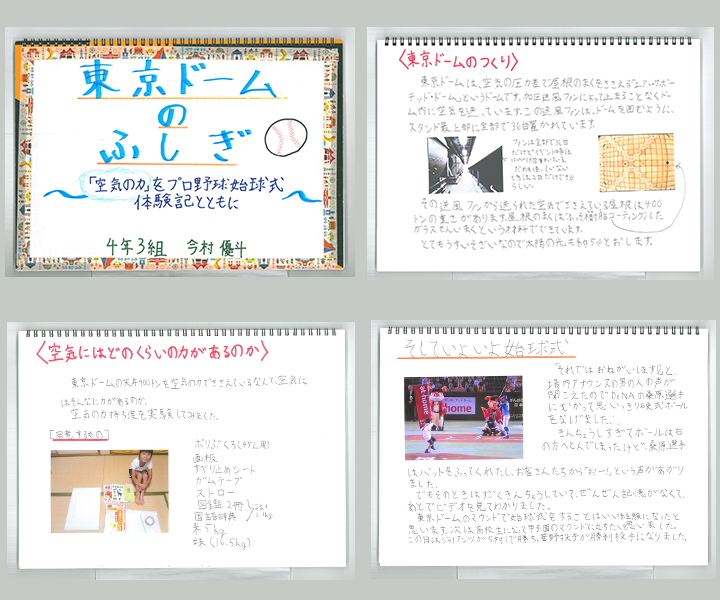 東京ドーム
の
ふしぎ
「空気の力」をプロ野球始球式
体験記とともに
4年3組 今村 優斗
〈東京ドームのつくり〉
東京ドームは、空気の圧力差で屋根のまくをささえる「エアーサポー
テッド・ドーム」というドームです。加圧送風ファンによって止まることなくドー
ム内に空気を送っています。この送風ファンは、ドームを囲むように、
スタンド最上部に全部で36台置かれています。
ファンは全部で36台
その送風ファンから送られた空気でささえている屋根は400
トンの重さがあります。屋根のまくは「ふっそ樹脂コーティングした
ガラスせんいまくという材料でできています。
とてもうすいそざいなので太陽の光も約5%とおします。
〈空気にはどのくらいの力があるのか〉
東京ドームの天井400トンを空気の力でささえているなんて、空気に
はそんなに力があるのか。
空気の力持ち度を実験してみました。
[用意するもの]
ポリぶくろ(45L用)
画板
すべり止めシート
ガムテープ
ストロー
図鑑2冊
国語辞典
米5kg
妹(16.5kg)
そしていよいよ始球式
「それではおねがいします」と、
場内アナウンスの男の人の声が
聞こえたのでDeNAの桑原選手
にむかって思いっきり硬式ボール
をなげました。
きんちょうしすぎてボールは右
の方へとんでしまったけど、桑原選手
home
はバットをふってくれたし、お客さんたちから「おーっ」という声があがり
ました。
でもそのときはすごくきんちょうしていて、ぜんぜん記憶がなくて、
あとでビデオを見てわかりました。
東京ドームのマウンドで始球式をすることはいい経験になったと
思います。次は高校生になって甲子園のマウンドに立ちたいと思いました。
この日はジャイアンツが5対1で勝ち、菅野投手が勝利投手になりました。